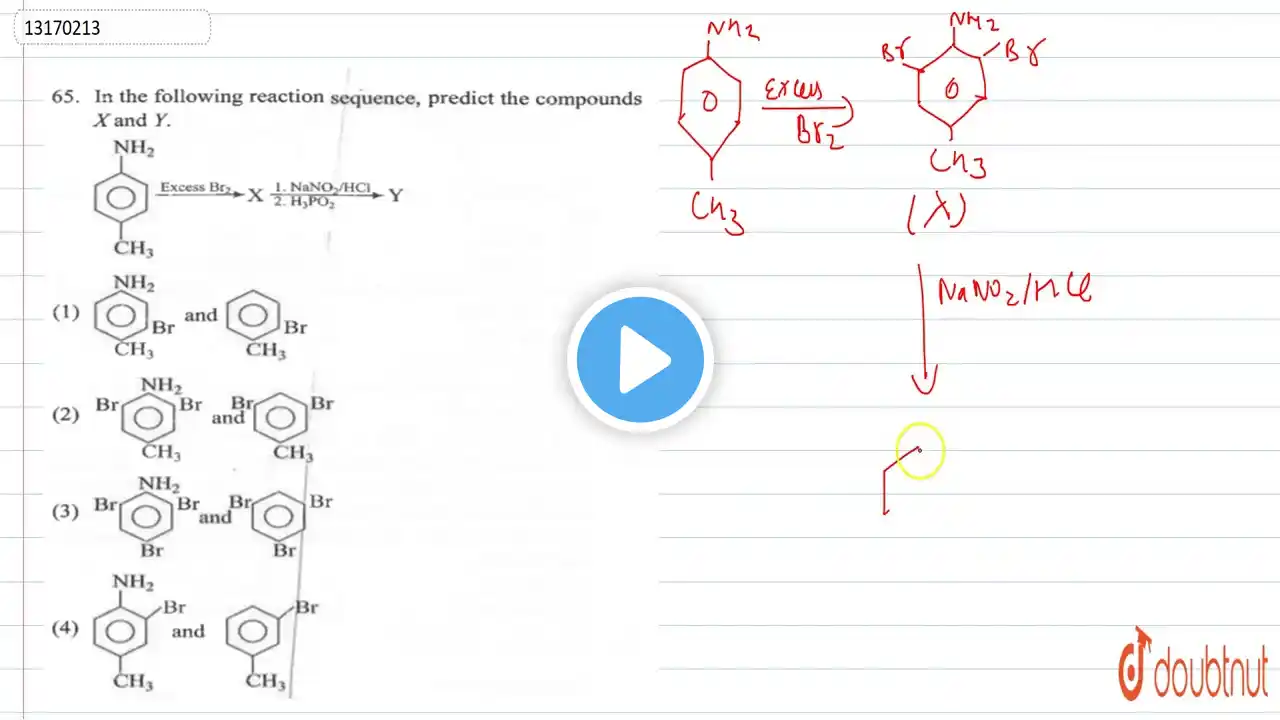 13170213
65. In the following reaction sequence, predict the compounds
X and Y.
NH2
Excess Br2 X 1. NaNO2/HCl Y
2. H3PO2
CH3
(1) NH2 Br CH3 and Br CH3
(2) NH2 Br Br CH3 and Br Br CH3
(3) NH2 Br Br Br and Br Br Br
(4) NH2 Br CH3 and Br CH3
NH2
Excess
Br2
CH3
NH2
Br Br
CH3
(X)
NaNO2/HCl
doubtnut